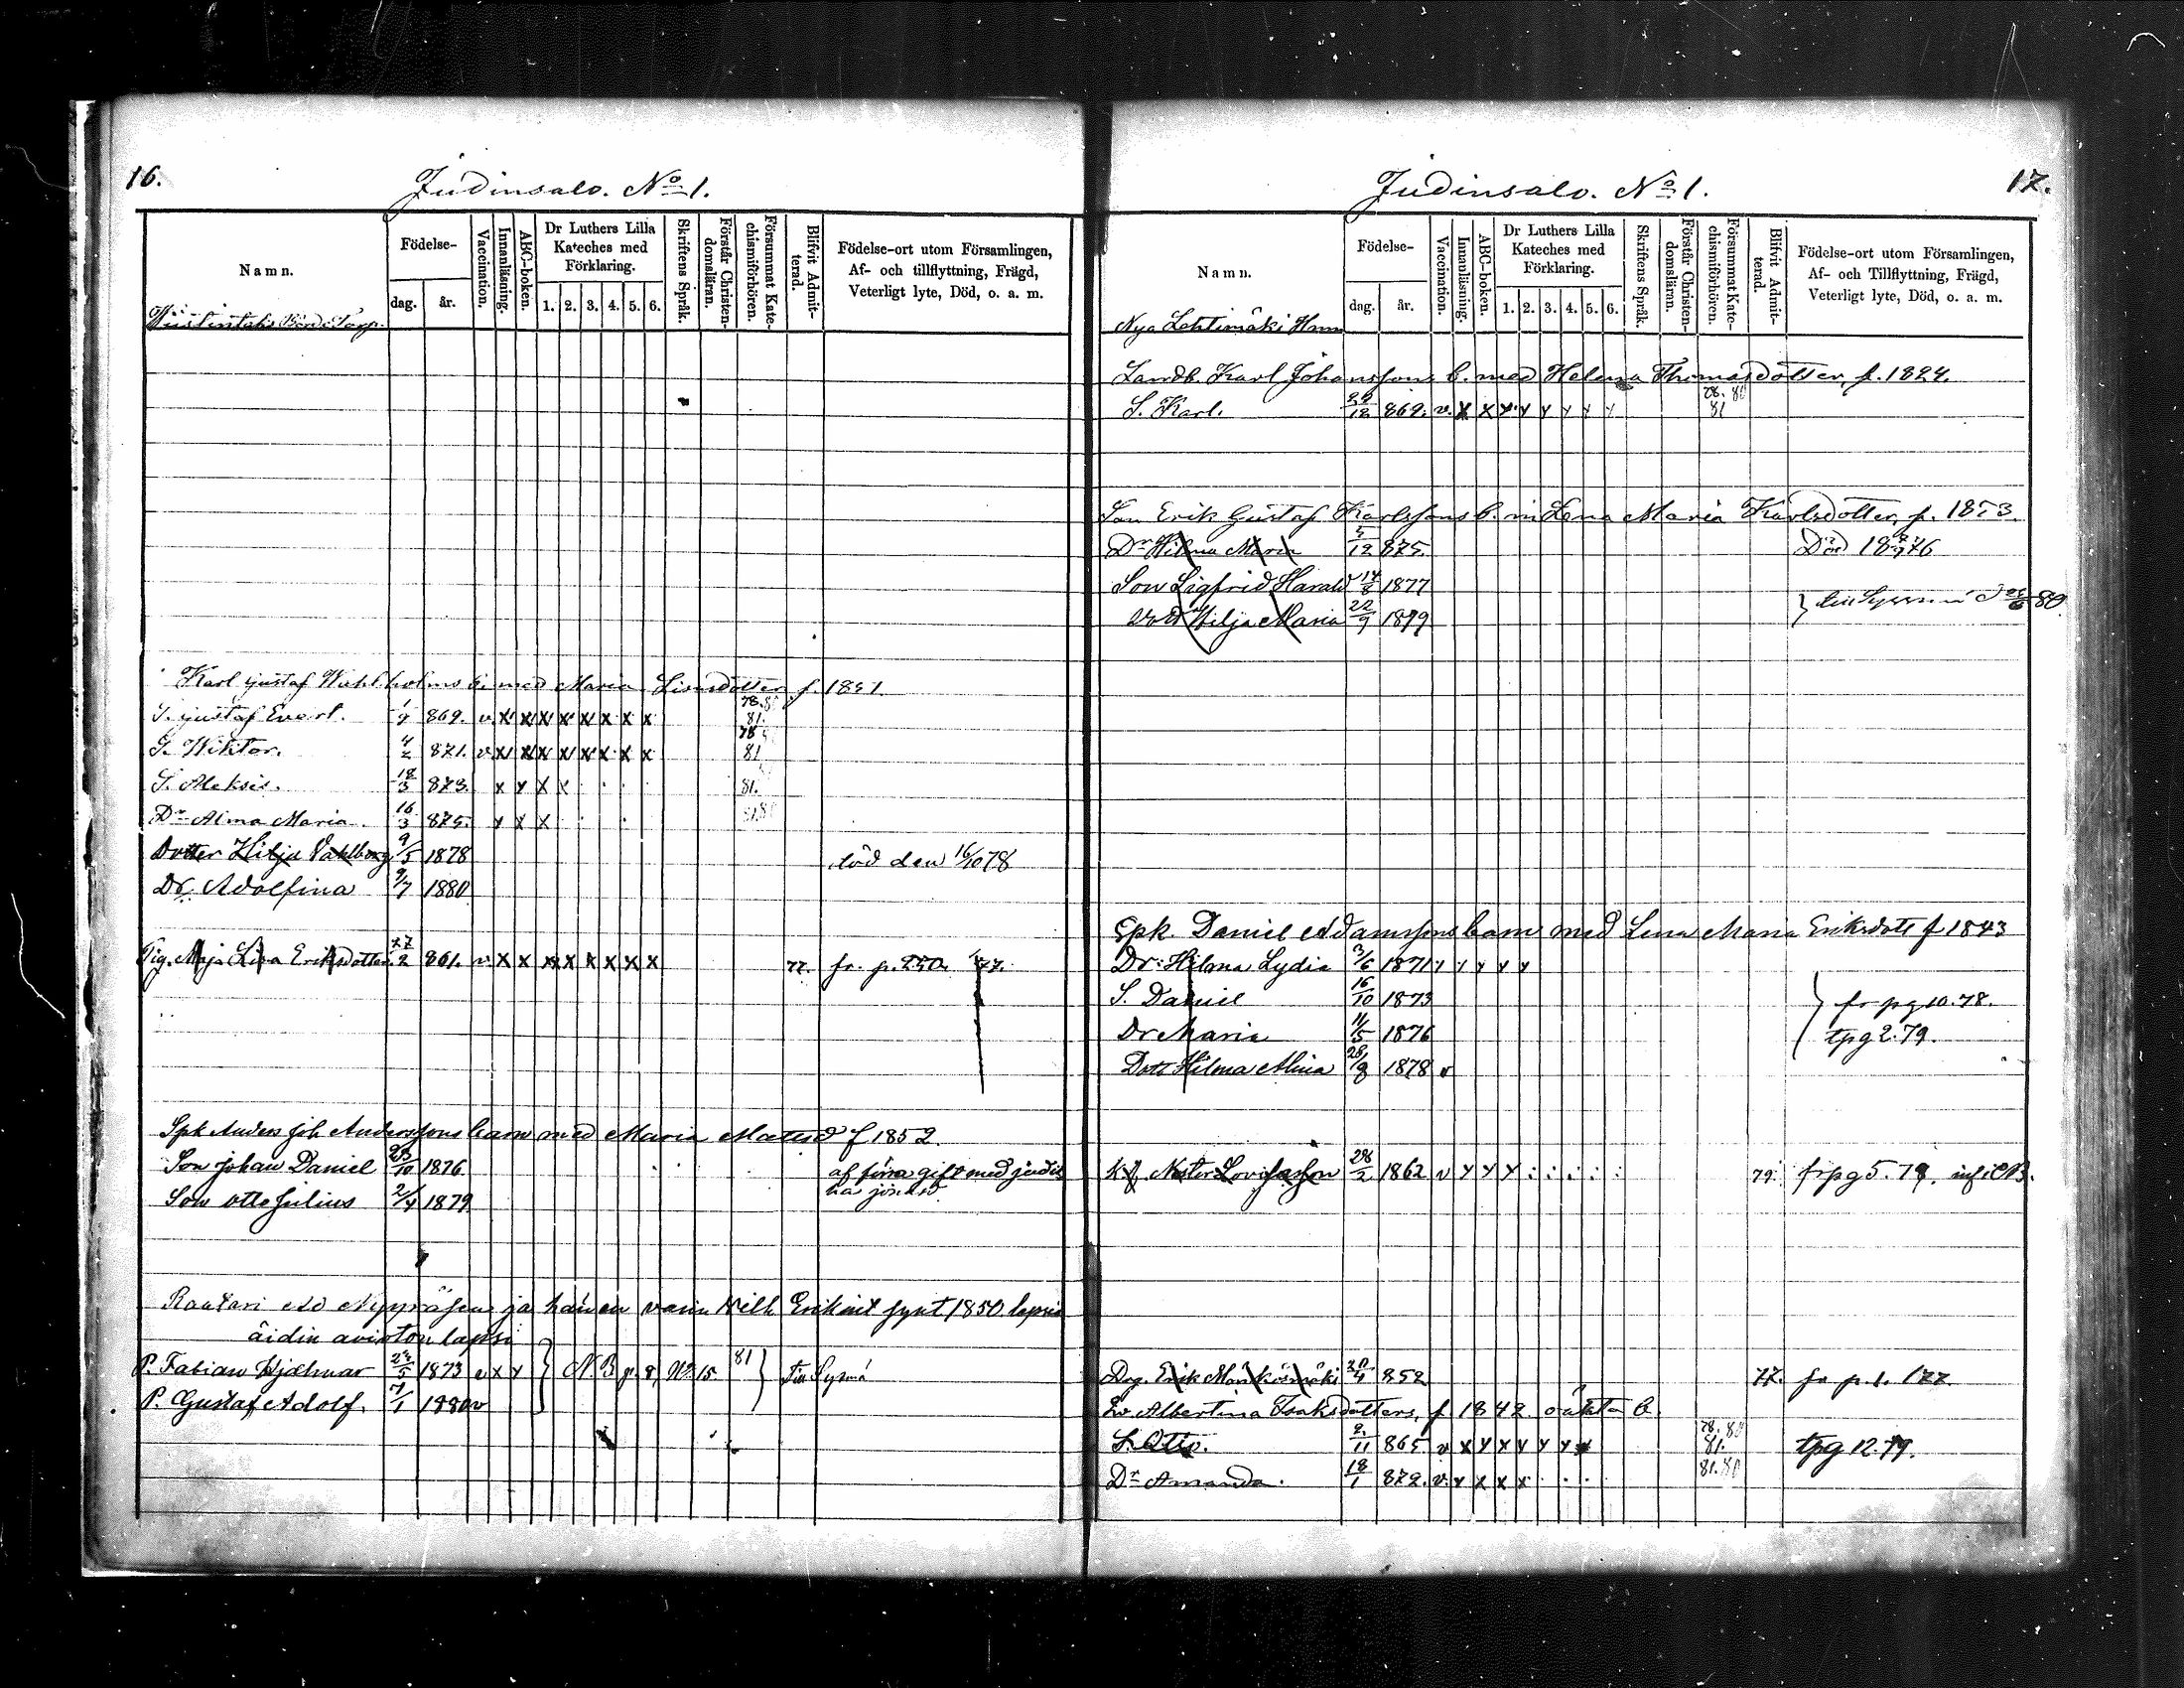 16.
Judinsalo. No 1.
Namn.
Födelse-
dag.
år.
Vaccination.
Innanläsning.
ABC-boken.
Dr Luthers Lilla Kateches med Förklaring.
1. 2. 3. 4. 5. 6.
Skriftens Språk.
Förstår Christendomsläran.
Försummat Katechismiförhören.
Blifvit Admitterad.
Födelse-ort utom Församlingen, Af- och tillflyttning, Frägd, Veterligt lyte, Död, o. a. m.
Karl Gustaf Wahlholms b. med Maria f. 1851.
S. Gustaf Evert. 1/9 869. v. x x x x x x x x 78. 80 81.
S. Wiktor. 4/2 871. v. x x x x x x x x 78 81
S. Aleksis. 18/3 873. x x x x 81.
Dr Alma Maria. 16/3 875. x x x 81. 80
Dotter Hilja Vahlborg 9/5 1878 död den 16/10 78
Dr. Adolfina 9/7 1880
Pig. Maja Lisa Eriksdotter 27/2 861. v. x x x x x x x x 77. fr. p. 250. 77.
Spk Anders Joh Anderssons barn med Maria Mattsd f 1852.
Son Johan Daniel 23/10 1876
Son Otto Julius 2/4 1879
ja hänen vaim Wilh Erikint synt 1850 lapsia
äidin avioton lapsi
P. Fabian Hjalmar 24/5 1873 v x x } N. B p. 8, No. 15. 81 } Till Sysmä
P. Gustaf Adolf. 7/1 1880 v
17.
Judinsalo. No 1.
Namn.
Födelse-
dag.
år.
Vaccination.
Innanläsning.
ABC-boken.
Dr Luthers Lilla Kateches med Förklaring.
1. 2. 3. 4. 5. 6.
Skriftens Språk.
Förstår Christendomsläran.
Försummat Katechismiförhören.
Blifvit Admitterad.
Födelse-ort utom Församlingen, Af- och Tillflyttning, Frägd, Veterligt lyte, Död, o. a. m.
Nya Lehtimäki Hem
Landb. Karl Johanssons b. med Helena Thomasdotter, f. 1824.
S. Karl. 29/12 869. v. x x x x x x x x 78. 80 81
Son Erik Gustaf Karlssons b. m Lena Maria Karlsdotter, f. 1853.
Dr Hilma Maria 12 875. Död 1876
Son Sigfrid Harald 14/8 1877
Dott Hilja Maria 22/9 1879
Spk. Daniel Adamssons barn med Lena Maria Eriksdott f 1843
Dr: Hilma Lydia 3/6 1871 v v v v v
S. Daniel 16/10 1873
} fr pg 10. 78.
Dr Maria 11/5 1876
tpg 2. 79.
Dott Hilma Alina 28/8 1878 v
Nestor Lovisasson 28/2 1862 v x x x 79. fr pg 5. 79.
Drg. Erik 30/4 852 77. fr p. 1. 177.
Albertina Isaksdotters, f 1842. oäkta b.
S. Otto. 2/11 865 v x x x x x x 78. 80 81. tpg 12. 79.
Dr Amanda. 18/1 872. v. x x x x 81. 80